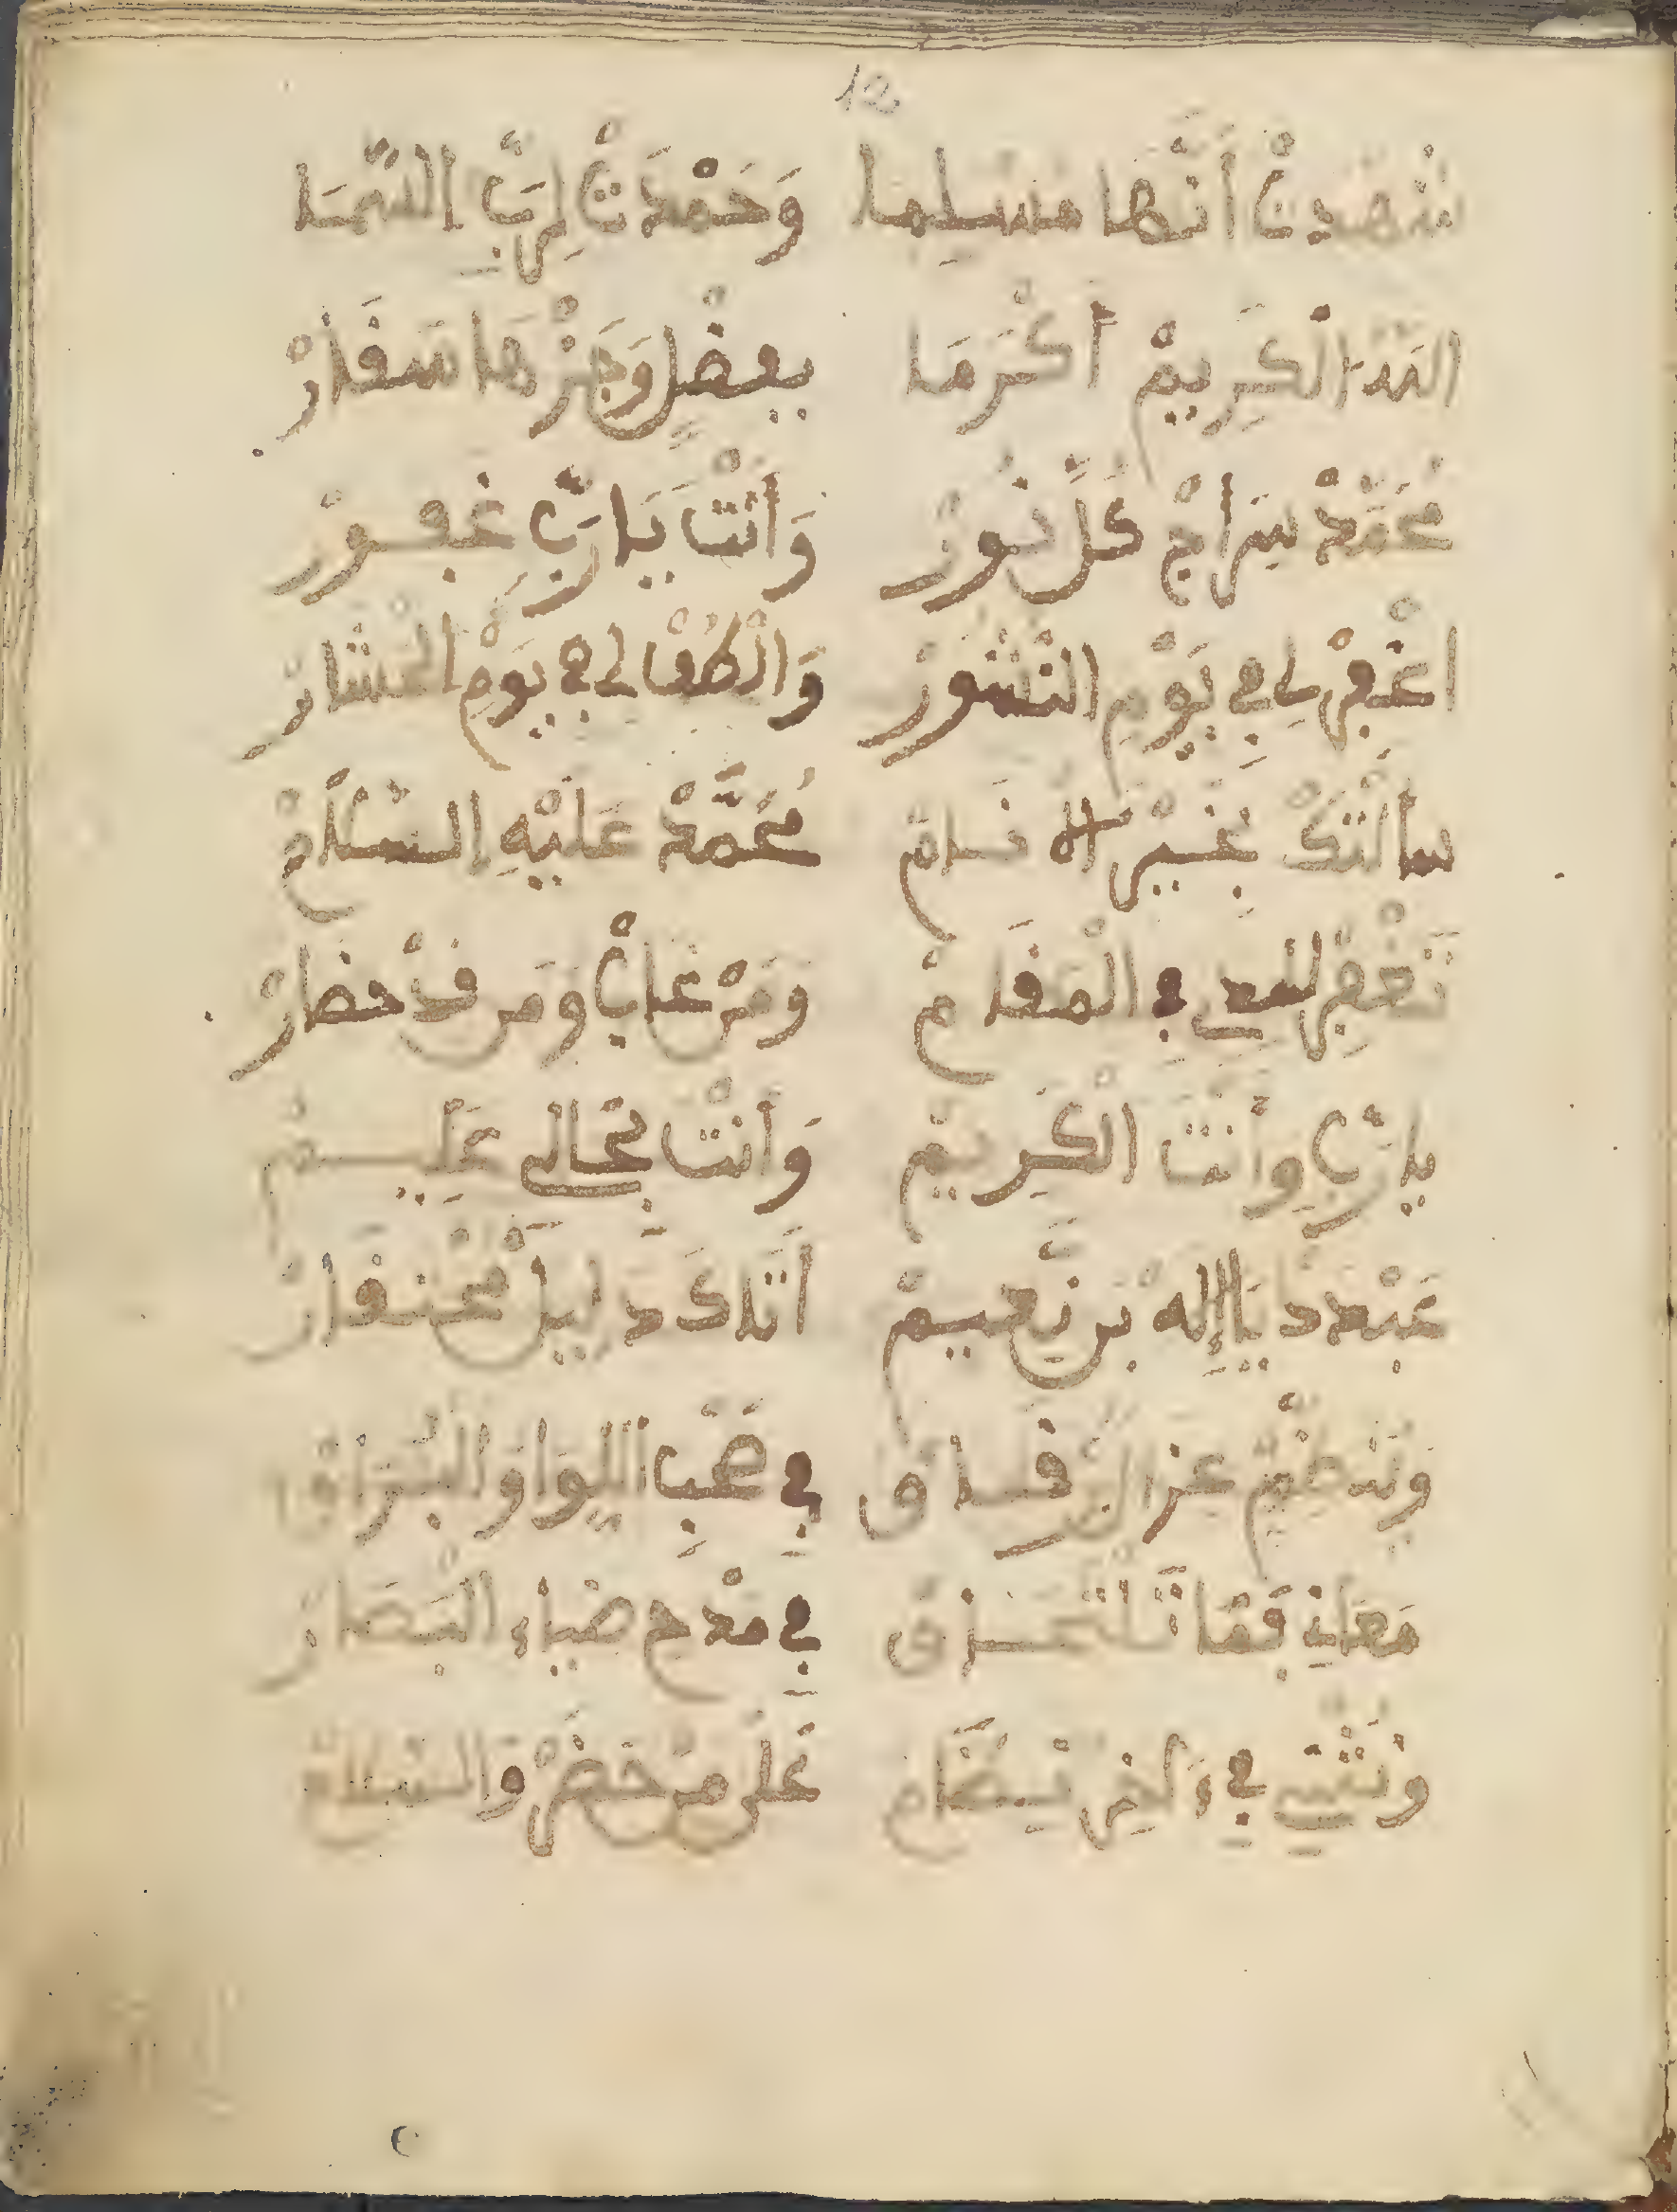 12
شَهْدتْ أَنَّهَا مسْلِمَا وَحَمْدَتْ لِرَبِّ السَّمَا
اللهْ الْكَرِيمْ أَكْرَمَا بفضْلٍ وَجَرْهَا سَفَارْ
مُحَمَّدْ سِرَاجْ كُلِّ نُورْ وَأَنْتَ يَا رَبِّ غفورْ
اغْفِرْ لِي فِي يَوْمِ النُّشُورْ وَالْطُفْ لِي فِي يَوْمِ الْحْشَارْ
سالْتَكْ بِخَيْرْ الأنَامْ مُحَمَّدْ عَلَيْهِ السَّلَامْ
تَغْفِرْ لي فِي الْمَقَامْ وَمَنْ غَابْ وَمَن قَدْ حضَارْ
يا رَبِّ وَأَنْتَ الْكَرِيمْ وَأَنْتَ بِحَالِي عَلِيمْ
عَبْدك يَا إِلَه بن نَّعِيمْ أَتَاكَ دلِيلْ مُحْتقَارْ
عن الرِّفَاقْ فِي صَاحِبِ اللِّوَا وَالْبُرَاقْ
مَعَانِي فِي مَدْحِ ضِيَاءِ الْبَصَارْ
ونَثْنِي فِي ءَاخِر نِظَامِي عَلَى مَنْ حَضَرْ وَالسَّلَامْ